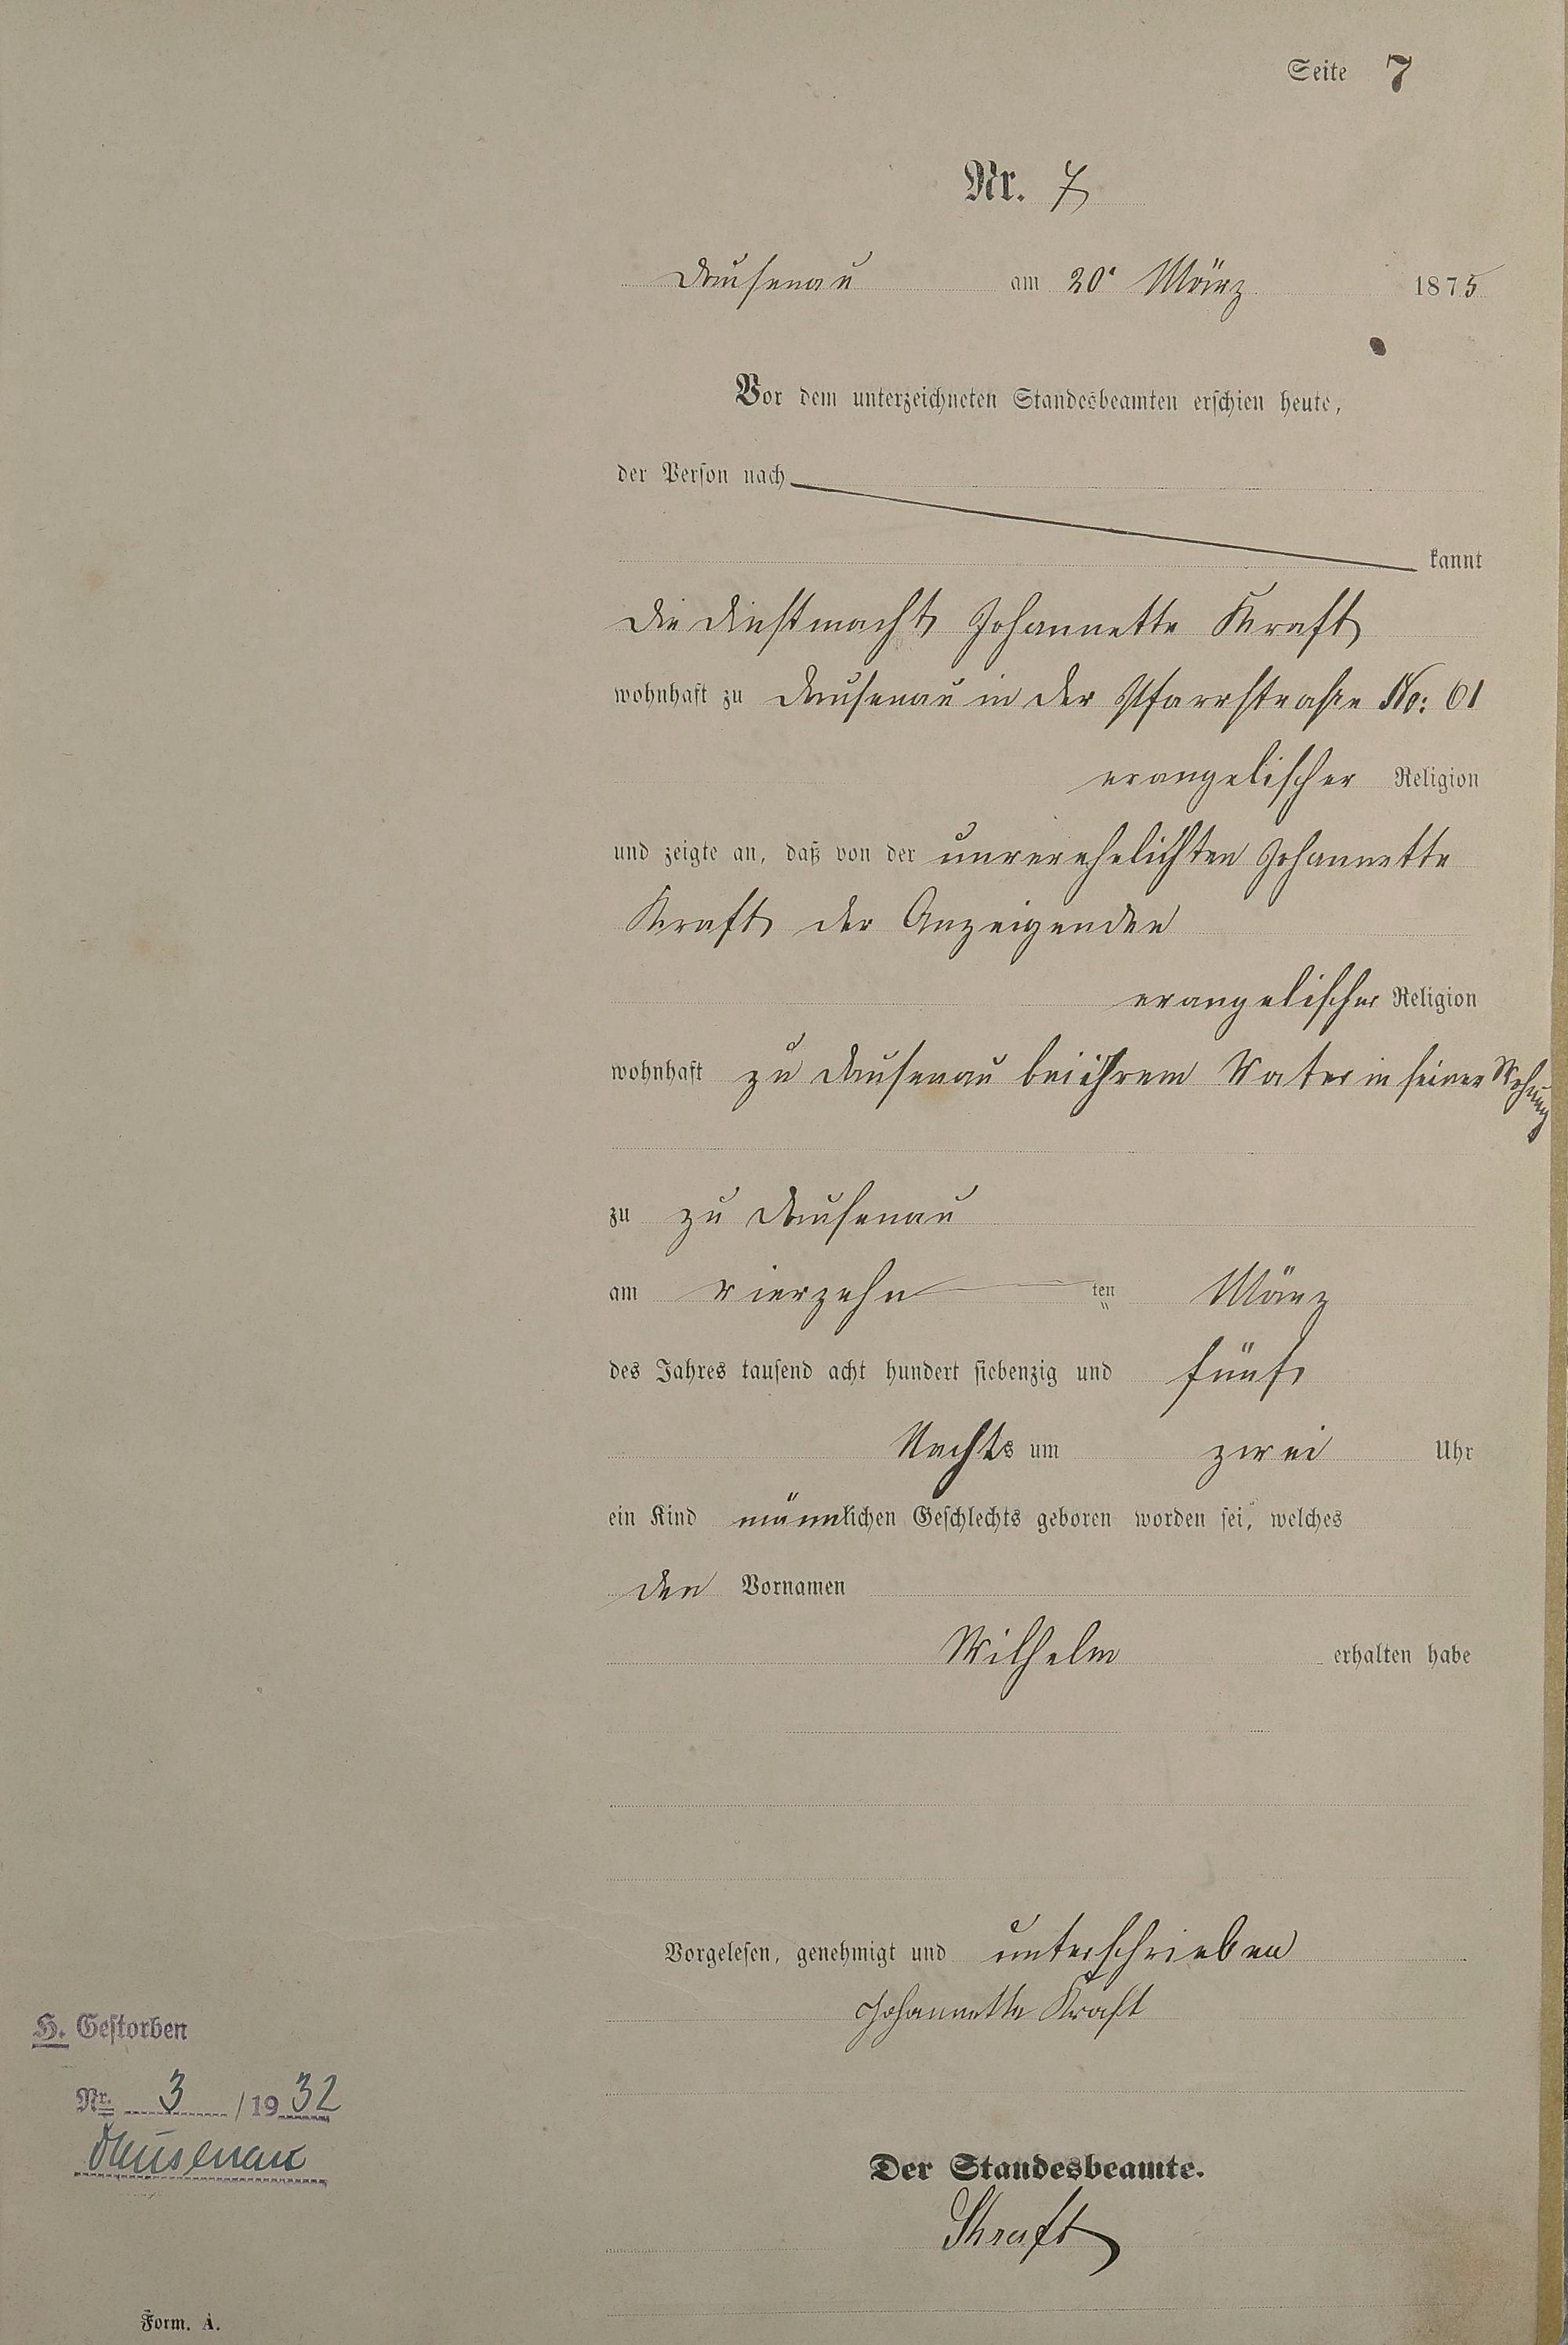 Seite 7
Nr. 7
Dausenau am 20. März 1875
Vor dem unterzeichneten Standesbeamten erschien heute,
der Person nach
kannt
die Dinstmacht Johannette Kraft
wohnhaft zu Dausenau in der Pfarrstraße No: 61
evangelischer Religion
und zeigte an, daß von der unverehelichten Johannette
Kraft der Anzeigenden
evangelischer Religion
wohnhaft zu Dausenau bei ihrem Vater in seiner Wohnung
zu zu Dausenau
am vierzehn ten März
des Jahres tausend acht hundert siebenzig und fünf
Nachts um zwei Uhr
ein Kind männlichen Geschlechts geboren worden sei, welches
den Vornamen
Wilhelm erhalten habe
Vorgelesen, genehmigt und unterschrieben
Johannette Kraft
H. Gestorben
Nr. 3 /1932
Dausenau
Der Standesbeamte.
Form. A.